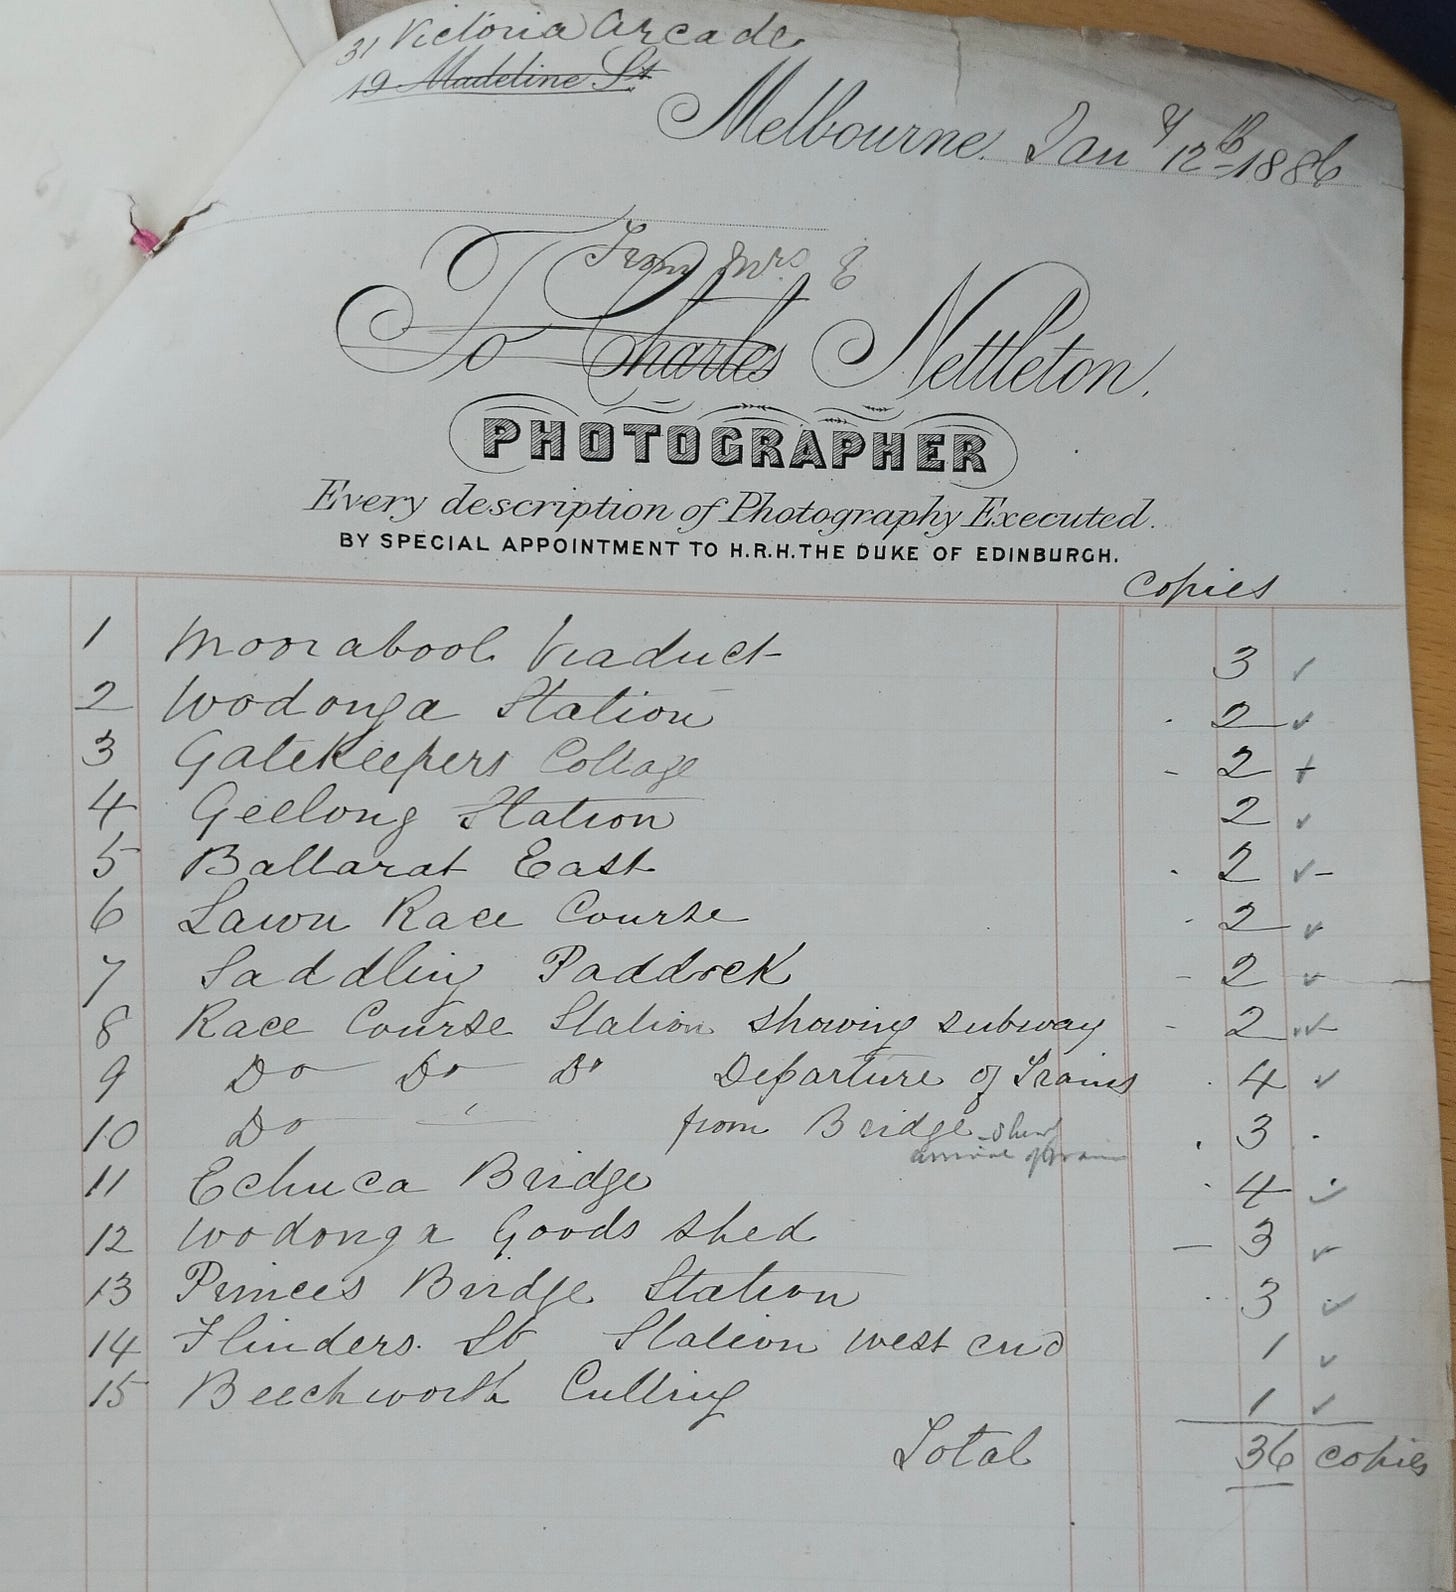 31 Victoria Arcade
19 Madeline St
Melbourne. Jany 12th 1886
From Mrs E
To Charles Nettleton.
PHOTOGRAPHER
Every description of Photography Executed.
BY SPECIAL APPOINTMENT TO H.R.H. THE DUKE OF EDINBURGH.
copies
1 Moorabool Viaduct 3 ✓
2 Wodonga Station 2 ✓
3 Gatekeepers Cottage 2 +
4 Geelong Station 2 ✓
5 Ballarat East 2 ✓
6 Lawn Race Course 2 ✓
7 Saddling Paddock 2 ✓
8 Race Course Station showing subway 2 ✓
9 Do Do Do Departure of Trains 4 ✓
10 Do from Bridge 3
arrival of train
11 Echuca Bridge 4 ✓
12 Wodonga Goods shed 3 ✓
13 Princes Bridge Station 3 ✓
14 Flinders. St Station west end 1 ✓
15 Beechworth Cutting 1 ✓
Total 36 copies